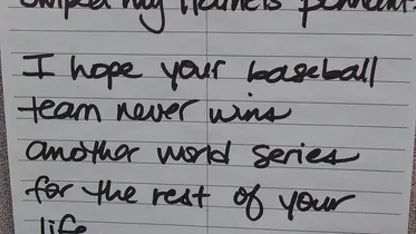 swiped my Orioles pennant.
I hope your baseball
team never wins
another world series
for the rest of your
life